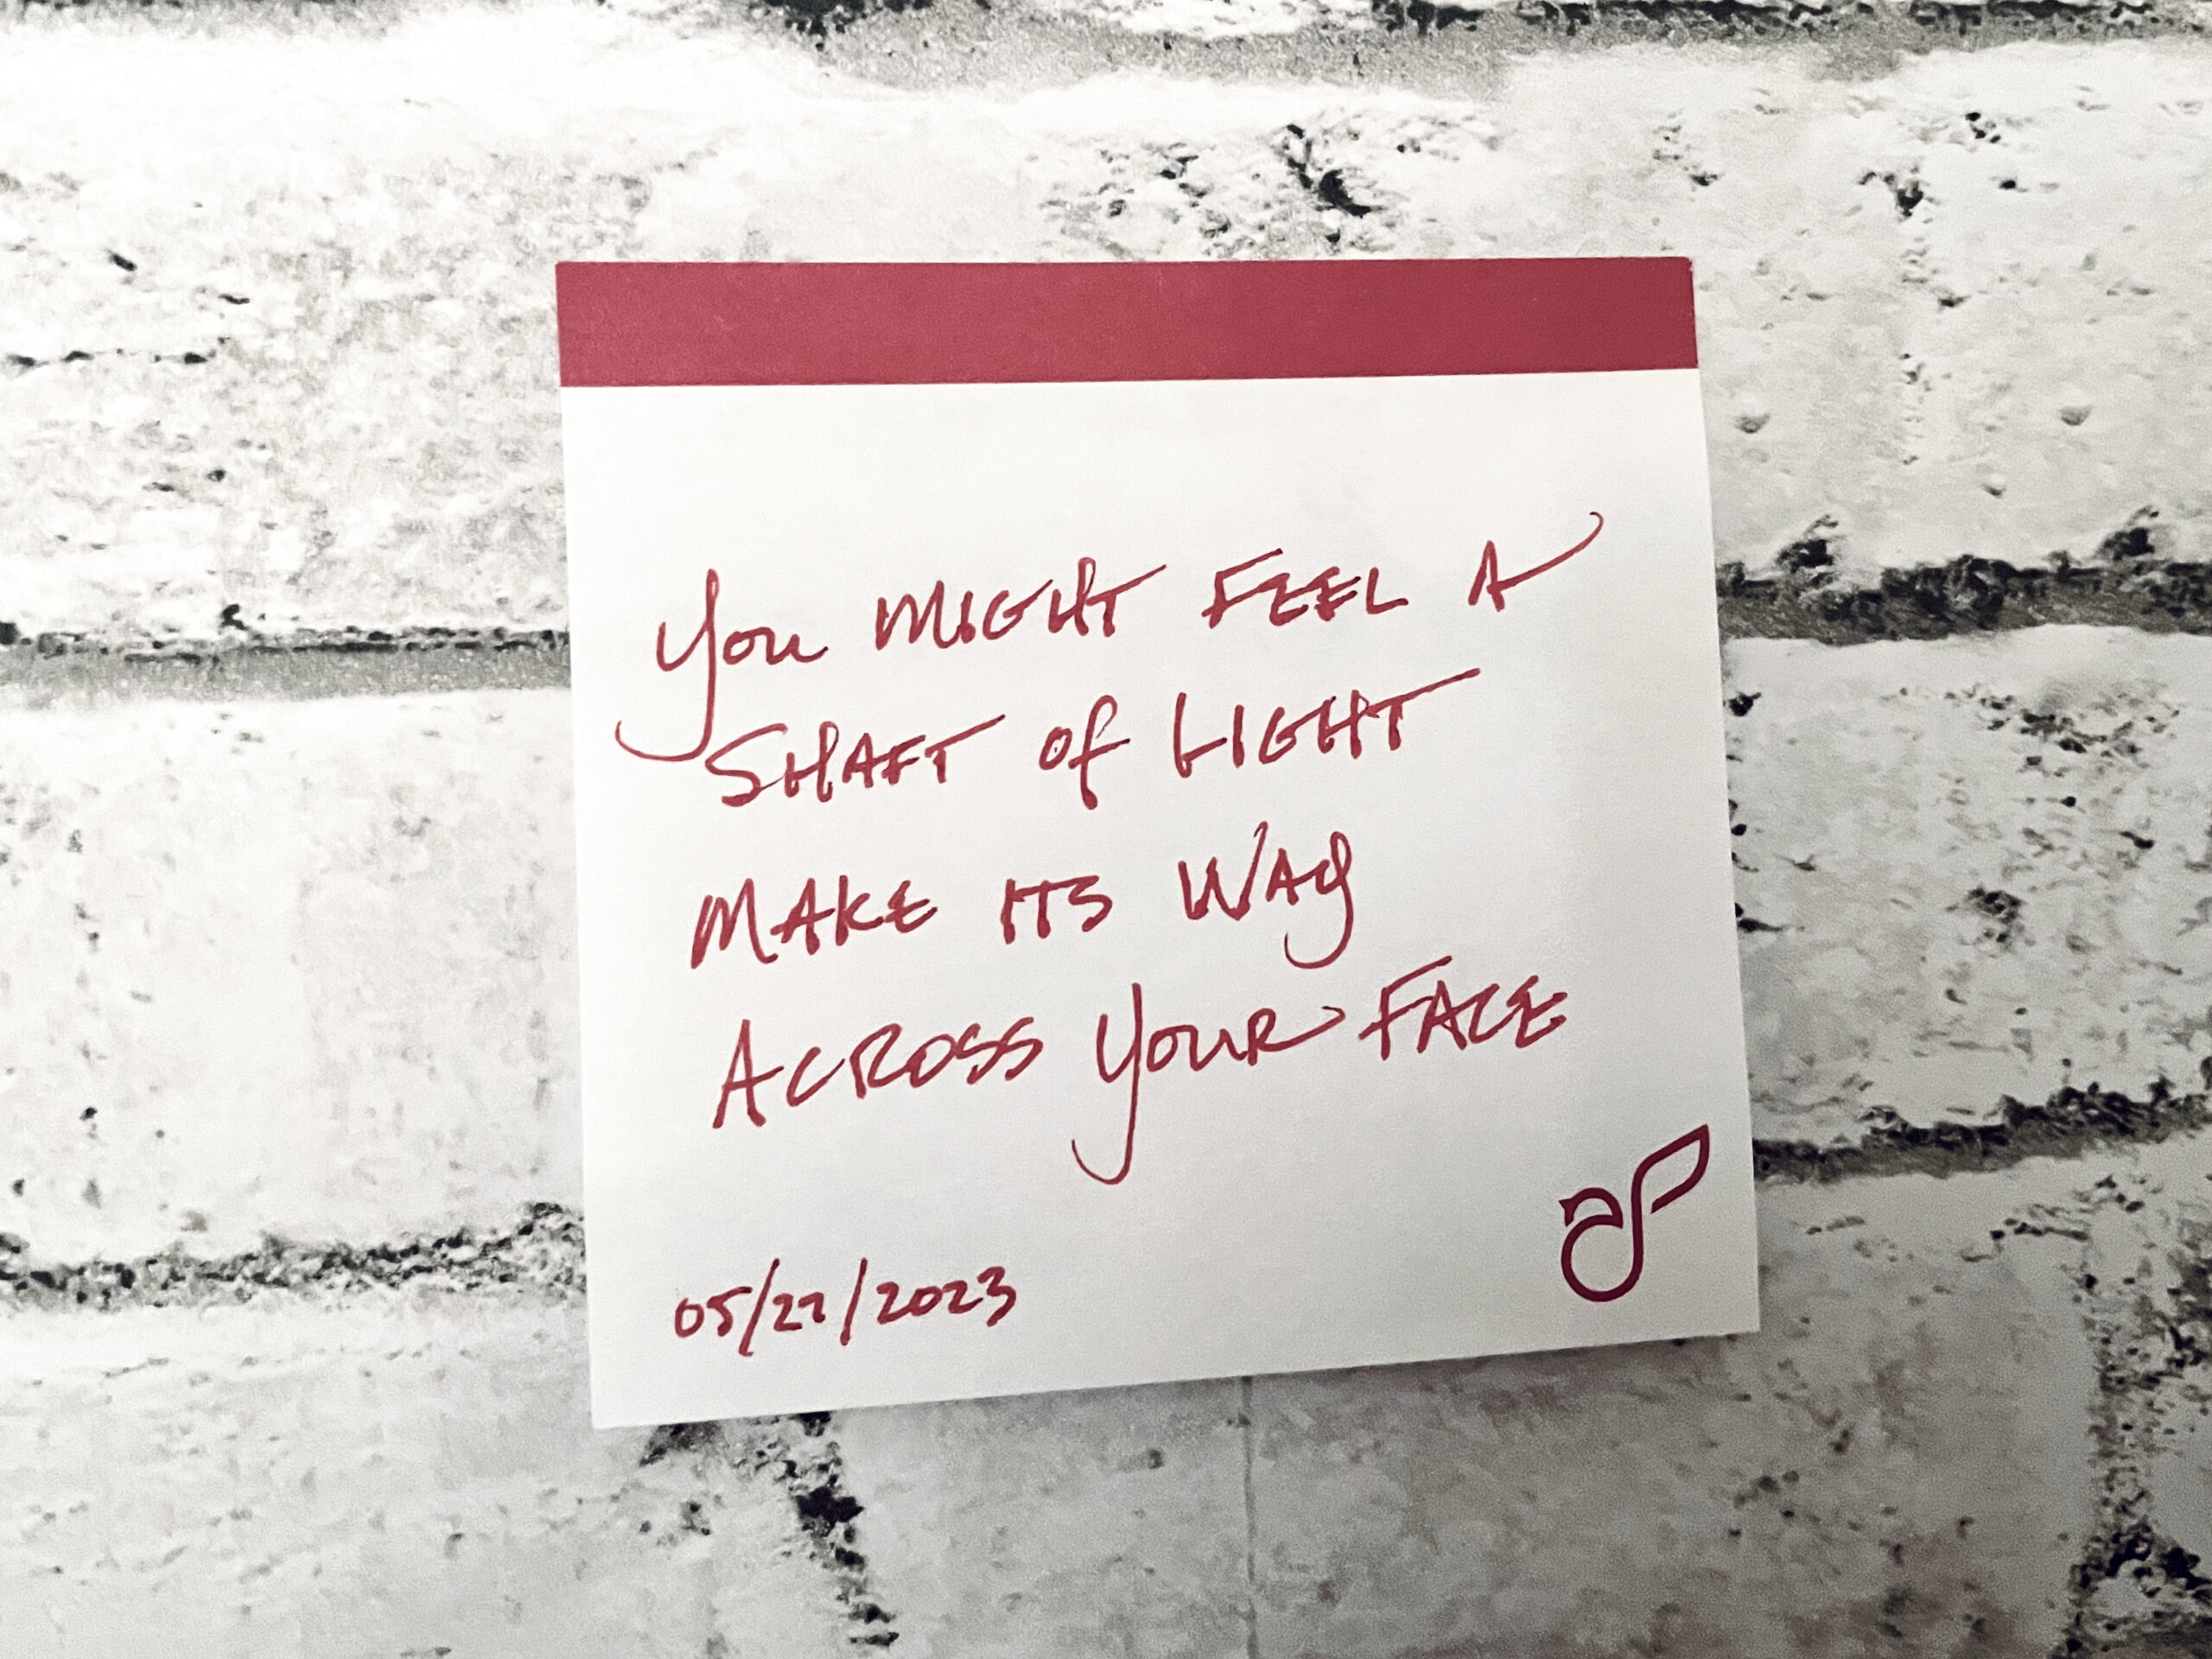 You MIGHT FEEL A
SHAFT of LIGHT
MAKE ITS WAY
ACROSS YOUR FACE
05/27/2023